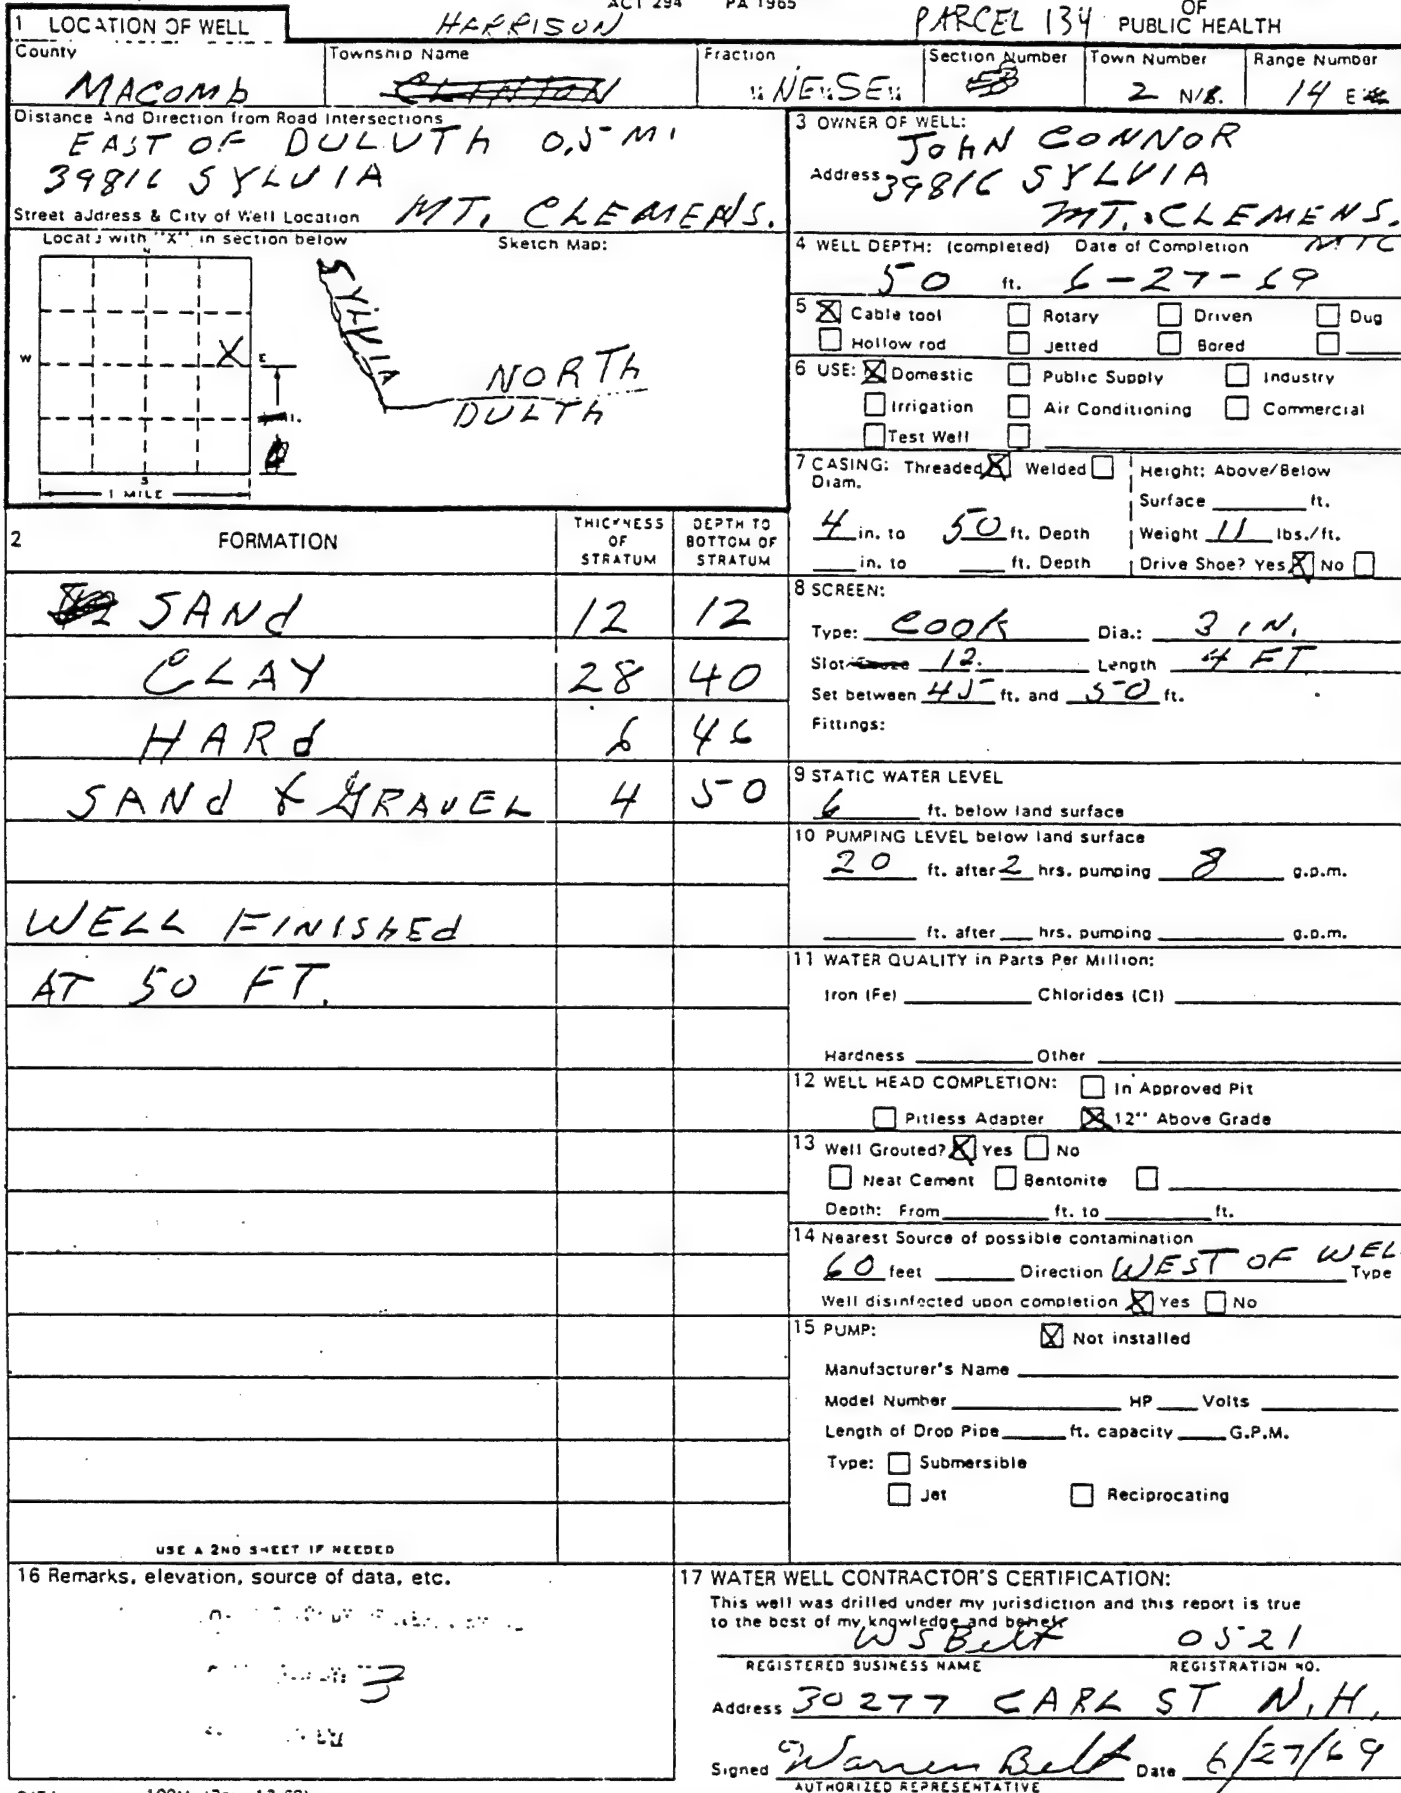 ACT 294 PA 1965
OF
1 LOCATION OF WELL HARRISON PARCEL 134 PUBLIC HEALTH
County Township Name Fraction Section Number Town Number Range Number
MAComb CLINTON ¼ NE ¼ SE ¼ 2 N/S. 14 E
Distance And Direction from Road Intersections
EAST OF DULUTh 0.5 MI
39816 SYLVIA
Street address & City of Well Location MT. CLEMENS.
Locate with "X" in section below Sketch Map:
N
W X E
S
1 MILE
SYLVIA
NORTh
DULTh
3 OWNER OF WELL:
JOhN CONNOR
Address 39816 SYLVIA
MT. CLEMENS.
MIC
4 WELL DEPTH: (completed) Date of Completion
50 ft. 6-27-69
5 ☒ Cable tool ☐ Rotary ☐ Driven ☐ Dug
☐ Hollow rod ☐ Jetted ☐ Bored ☐
6 USE: ☒ Domestic ☐ Public Supply ☐ Industry
☐ Irrigation ☐ Air Conditioning ☐ Commercial
☐ Test Well ☐
7 CASING: Threaded ☒ Welded ☐ Height: Above/Below
Diam.
Surface ____ ft.
4 in. to 50 ft. Depth Weight 11 lbs./ft.
____ in. to ____ ft. Depth Drive Shoe? Yes ☒ No ☐
2 FORMATION THICKNESS OF STRATUM DEPTH TO BOTTOM OF STRATUM
SANd 12 12
CLAY 28 40
HARd 6 46
SANd & GRAVEL 4 50
WELL FINIShEd
AT 50 FT.
USE A 2ND SHEET IF NEEDED
8 SCREEN:
Type: COOK Dia.: 3 IN.
Slot/Gauze 12 Length 4 FT
Set between 45 ft. and 50 ft.
Fittings:
9 STATIC WATER LEVEL
6 ft. below land surface
10 PUMPING LEVEL below land surface
20 ft. after 2 hrs. pumping 8 g.p.m.
____ ft. after ____ hrs. pumping ____ g.p.m.
11 WATER QUALITY in Parts Per Million:
Iron (Fe) ____ Chlorides (Cl) ____
Hardness ____ Other ____
12 WELL HEAD COMPLETION: ☐ In Approved Pit
☐ Pitless Adapter ☒ 12" Above Grade
13 Well Grouted? ☒ Yes ☐ No
☐ Neat Cement ☐ Bentonite ☐ ____
Depth: From ____ ft. to ____ ft.
14 Nearest Source of possible contamination
60 feet ____ Direction WEST OF WEL Type
Well disinfected upon completion ☒ Yes ☐ No
15 PUMP: ☒ Not installed
Manufacturer's Name ____
Model Number ____ HP ____ Volts ____
Length of Drop Pipe ____ ft. capacity ____ G.P.M.
Type: ☐ Submersible
☐ Jet ☐ Reciprocating
16 Remarks, elevation, source of data, etc.
3
17 WATER WELL CONTRACTOR'S CERTIFICATION:
This well was drilled under my jurisdiction and this report is true
to the best of my knowledge and belief.
WS Belt 0521
REGISTERED BUSINESS NAME REGISTRATION NO.
Address 30277 CARL ST N.H.
Signed Warren Belt Date 6/27/69
AUTHORIZED REPRESENTATIVE